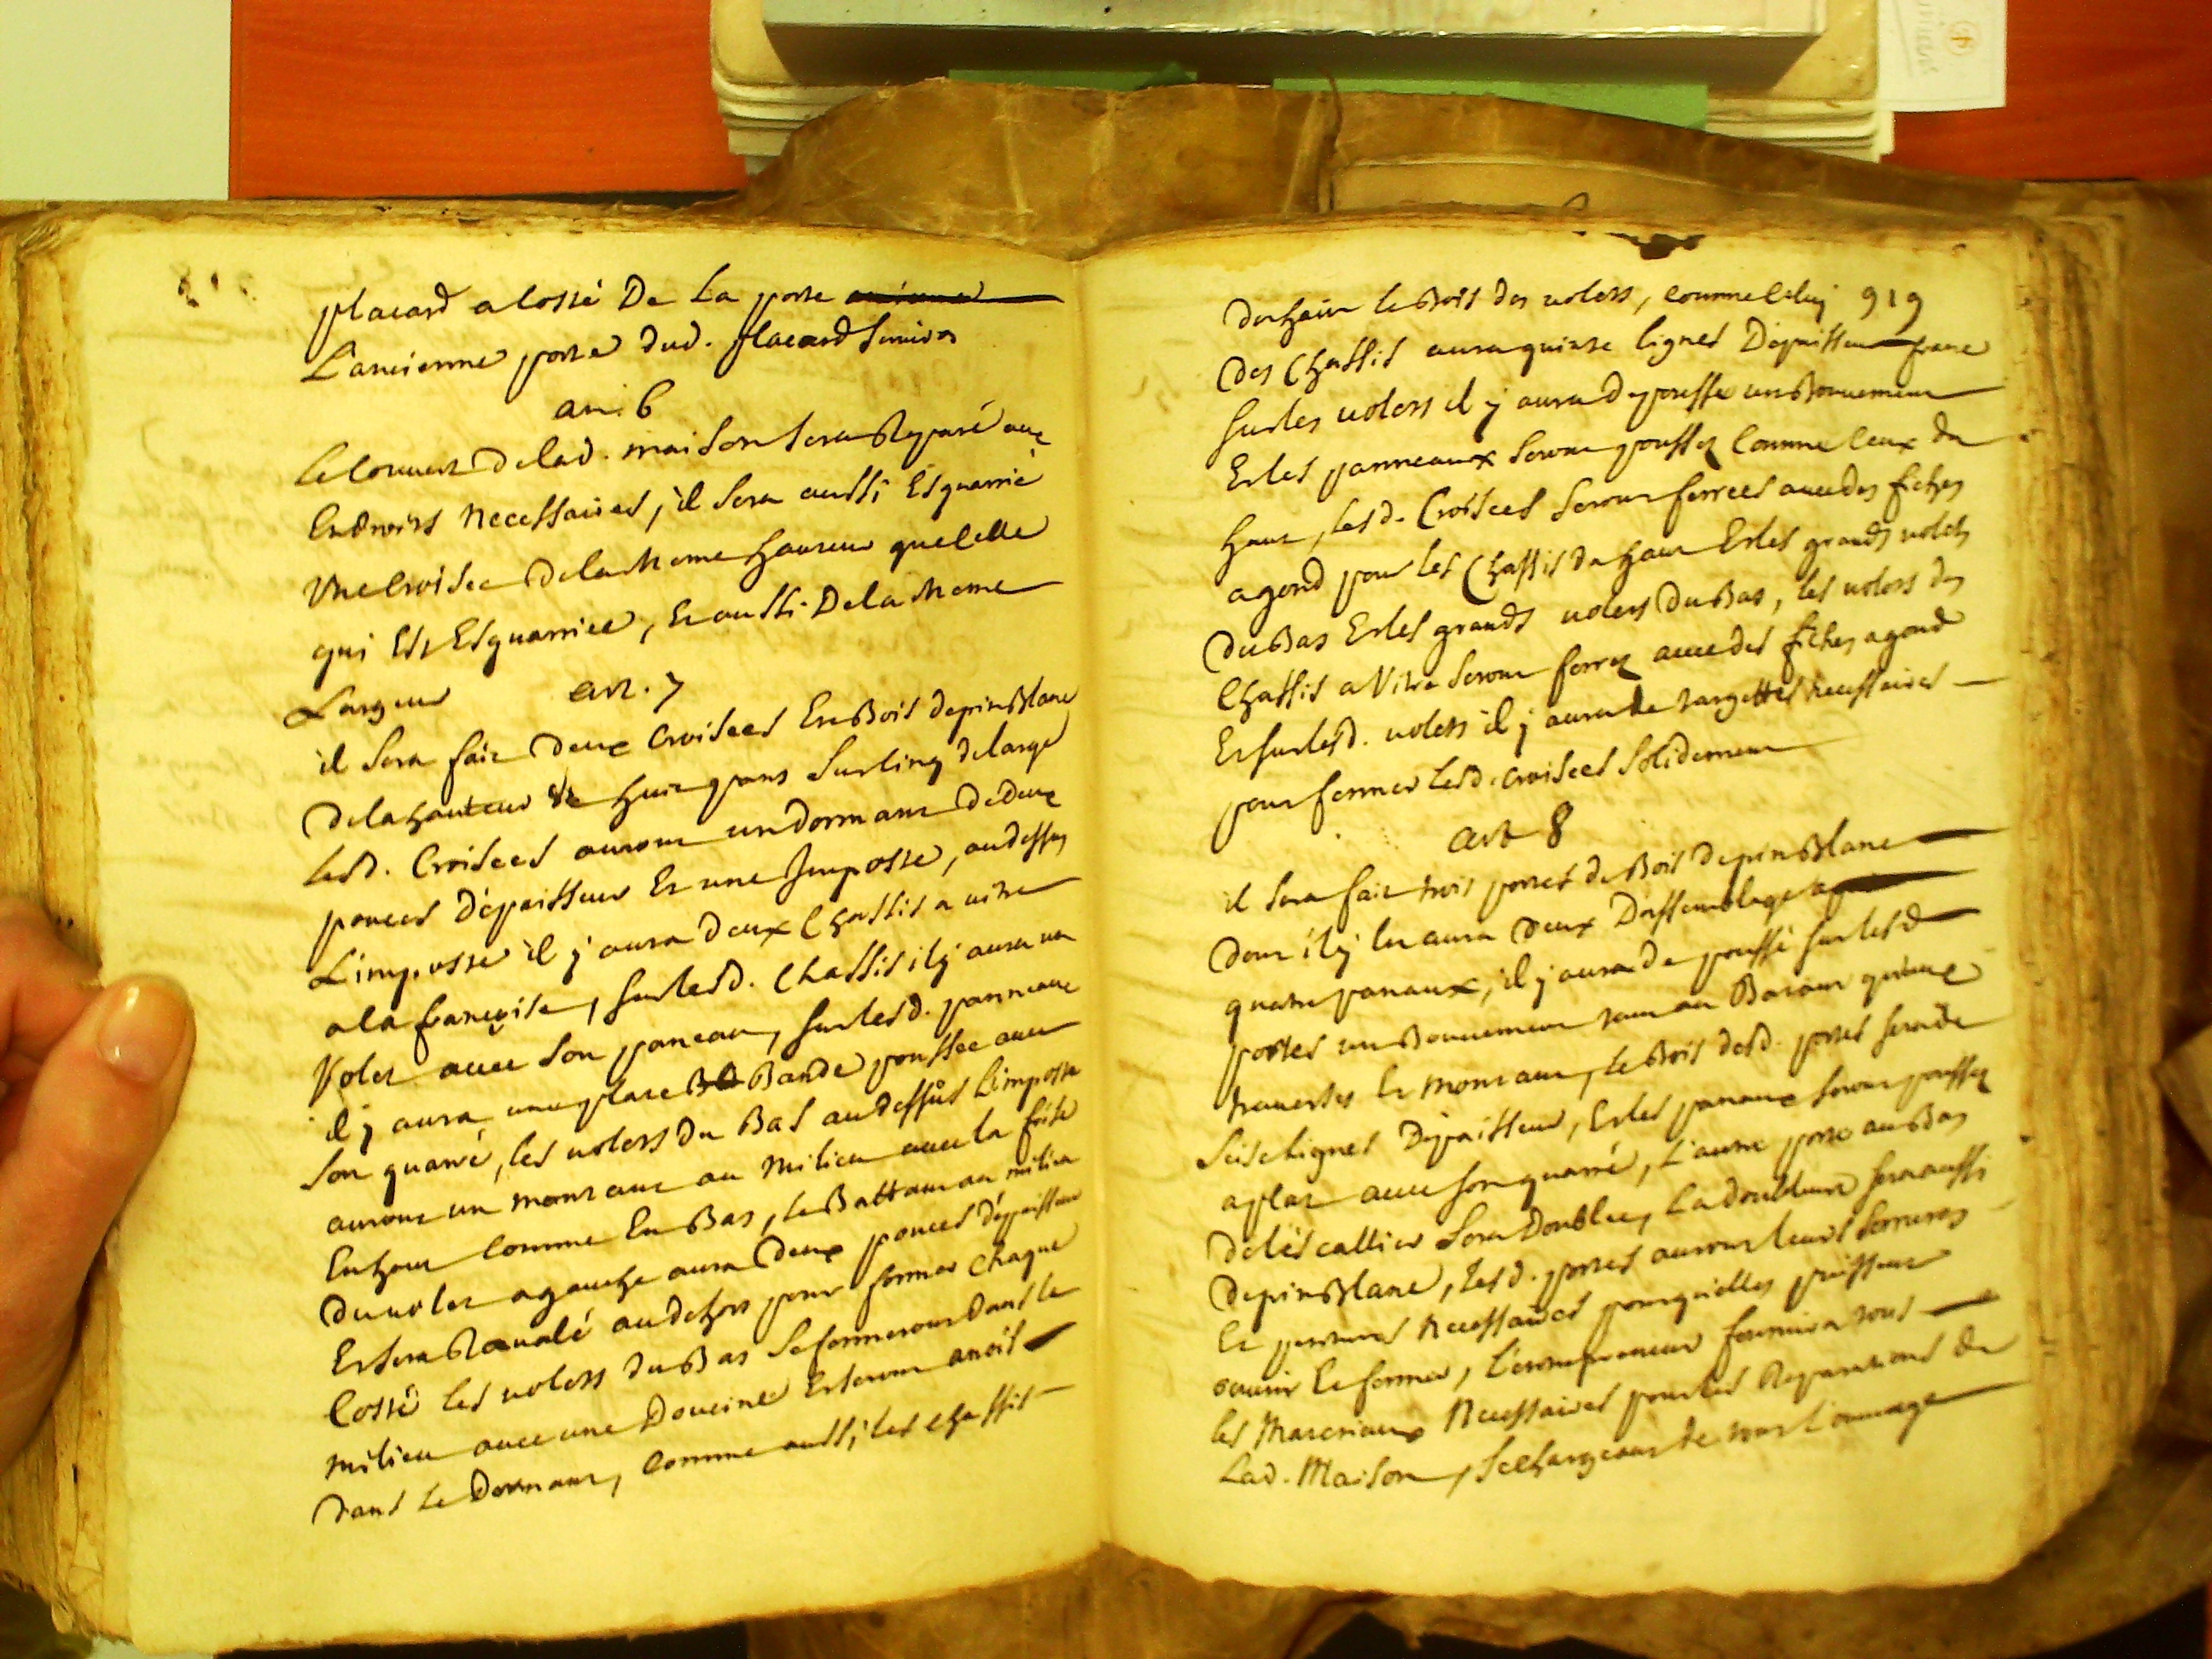 placard a costé De La porte
L'ancienne porte dud. placard servira
art. 6
Le couvert delad. maison sera Reparé aux
Endroits necessaires, il sera aussi Esquarrié
Une croisée delamême hauteur quecelle
qui Est Esquarriee, Et aussi Delamême
Largeur art. 7
il sera fait deux croisées En Bois depin Blanc
Delahauteur de huit pans sur cinq delarge
Lesd. Croisees auront un dormant dedeux
pouces d'épaisseur Et une Imposte, audessus
L'imposte il y aura deux Chassis a vitre
ala françoise, sur lesd. Chassis il y aura un
Volet avec son paneau, sur lesd. panneaux
il y aura une plate Bande poussée avec
son quarré, les volets du Bas audessus L'imposte
auront un montant au milieu avec la frise
En haut comme En Bas, le Battant au milieu
du volet a gauche aura deux pouces d'épaisseur
Et sera Ravalé audehors pour former chaque
Costé les volets du Bas se fermeront dans le
milieu avec une Doucine Et seront
dans Le Dormant, comme aussi les chassis
du haut le Bois des volets, comme Celuy 919
des Chassis aura quinze lignes D'épaisseur franc
sur les volets il y aura de poussé un Bouvement
Et les panneaux seront poussez Comme Ceux du
haut, lesd. Croisees seront ferrees avec des fiches
a gond pour les Chassis du haut Et les grands volets
du Bas Et les grands volets du Bas, les volets des
Chassis a Vitre seront ferrez avec des fiches a gond
Et sur lesd. volets il y aura de targettes necessaires
pour fermer lesd. croisees solidement
art 8
il sera fait trois portes de Bois de pin Blanc
dont il y En aura deux D'assemblage a
quatre panaux, il y aura de poussé sur lesd
portes un Bouvement tant au Batant qu'aux
traverses Et montant, le Bois desd. portes sera de
seise Lignes D'épaisseur, Et les panaux seront poussez
a plat avec son quarré, L'autre porte au Bas
del'éscallier sera Doublée, La doublure sera aussi
De pin Blanc, lesd. portes auront leurs serrures
Et necessaires pour qu'elles puissent
ouvrir Et fermer, L'entrepreneur fournira tous
les Materiaux Necessaires pour les Reparations de
Lad. Maison, se chargeant de tout L'ouvrage